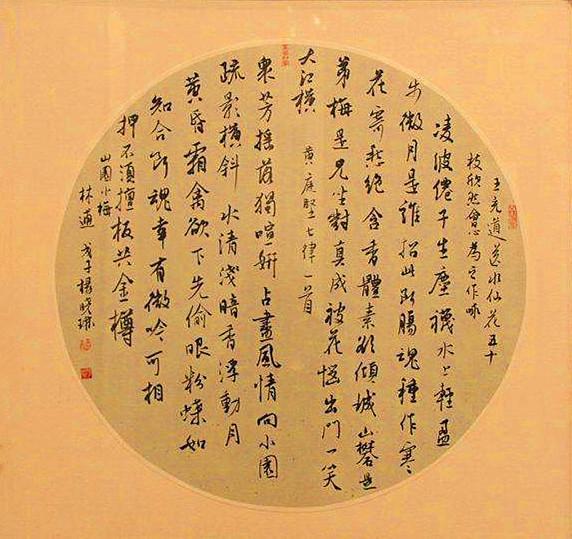 王充道送水仙花五十
枝欣然會心為之作咏
凌波僊子生塵襪水上輕盈
步微月是誰招此断腸魂種作寒
花寄愁絕含香體素欲傾城山礬是
弟梅是兄坐對真成被花惱出門一笑
大江橫 黃庭堅七律一首
衆芳搖落獨喧妍占盡風情向小園
疏影橫斜水清淺暗香浮動月
黃昏霜禽欲下先偷眼粉蝶如
知合断魂幸有微吟可相
押不須檀板共金樽
山園小梅
林逋 戊子楊